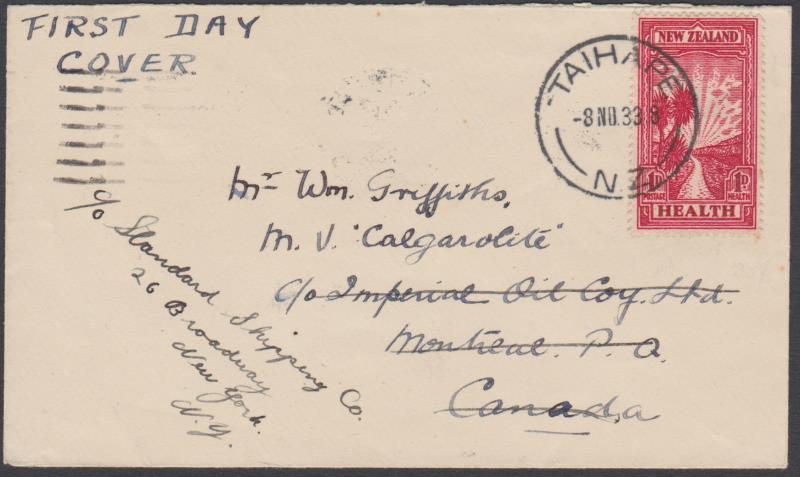 FIRST DAY
COVER
NEW ZEALAND
1D 1D
POSTAGE HEALTH
HEALTH
TAIHAPE
-8 NO.33 8
N.Z.
Mr Wm. Griffiths,
M. V. "Calgarolite"
c/o Imperial Oil Coy. Ltd.
Montreal. P. Q.
Canada
c/o Standard Shipping Co.
26 Broadway
New York.
N.Y.